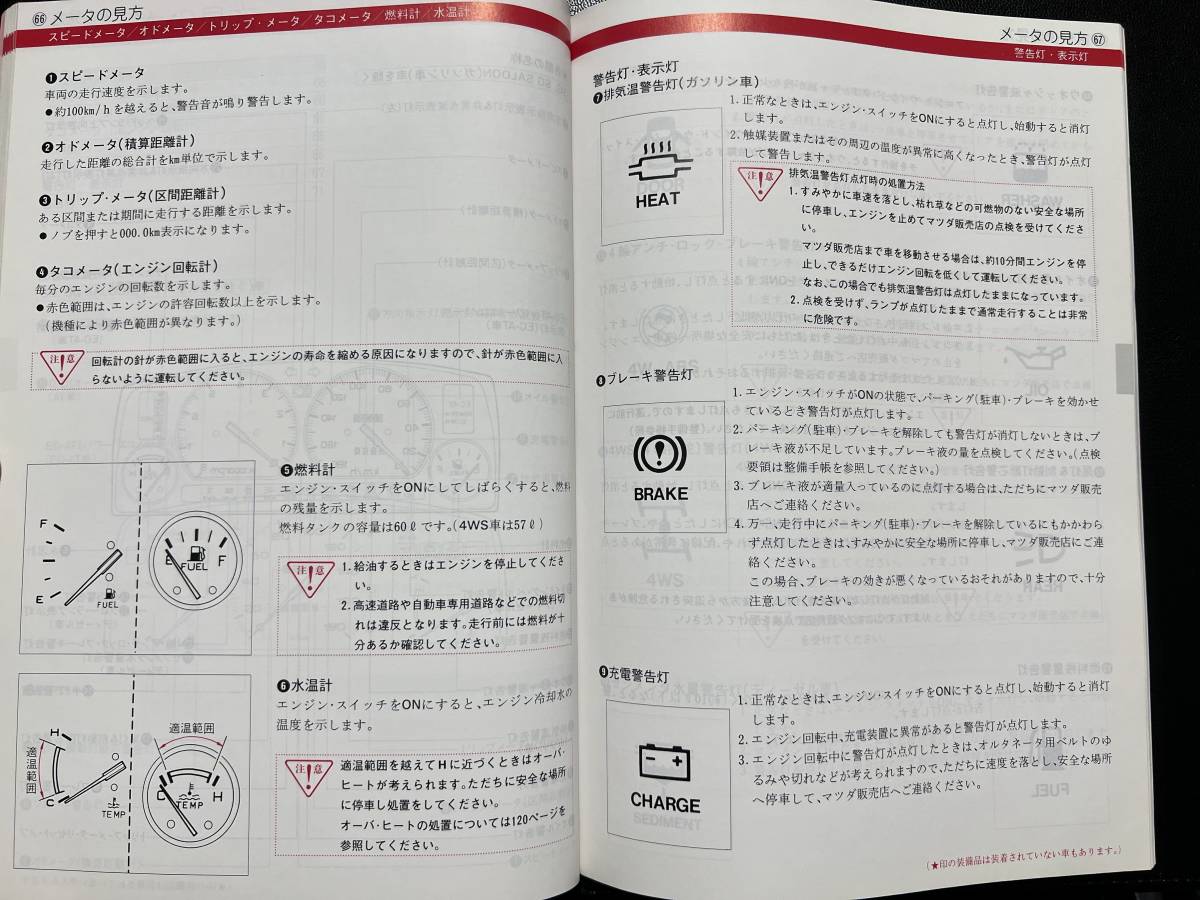 66 メータの見方
スピードメータ／オドメータ／トリップ・メータ／タコメータ／燃料計／水温計
❶スピードメータ
車両の走行速度を示します。
●約100km/hを越えると、警告音が鳴り警告します。
❷オドメータ(積算距離計)
走行した距離の総合計をkm単位で示します。
❸トリップ・メータ(区間距離計)
ある区間または期間に走行する距離を示します。
●ノブを押すと000.0km表示になります。
❹タコメータ(エンジン回転計)
毎分のエンジンの回転数を示します。
●赤色範囲は、エンジンの許容回転数以上を示します。
(機種により赤色範囲が異なります。)
注意
回転計の針が赤色範囲に入ると、エンジンの寿命を縮める原因になりますので、針が赤色範囲に入
らないように運転してください。
F
E
FUEL
E
F
FUEL
❺燃料計
エンジン・スイッチをONにしてしばらくすると、燃料
の残量を示します。
燃料タンクの容量は60ℓです。(4WS車は57ℓ)
注意
1. 給油するときはエンジンを停止してくださ
い。
2. 高速道路や自動車専用道路などでの燃料切
れは違反となります。走行前には燃料が十
分あるか確認してください。
H
適温範囲
C
TEMP
適温範囲
C
H
TEMP
❻水温計
エンジン・スイッチをONにすると、エンジン冷却水の
温度を示します。
注意
適温範囲を越えてHに近づくときはオーバ・
ヒートが考えられます。ただちに安全な場所
に停車し処置をしてください。
オーバ・ヒートの処置については120ページを
参照してください。
メータの見方 67
警告灯・表示灯
警告灯・表示灯
❼排気温警告灯(ガソリン車)
HEAT
1. 正常なときは、エンジン・スイッチをONにすると点灯し、始動すると消灯
します。
2. 触媒装置またはその周辺の温度が異常に高くなったとき、警告灯が点灯
して警告します。
注意
排気温警告灯点灯時の処置方法
1. すみやかに車速を落とし、枯れ草などの可燃物のない安全な場所
に停車し、エンジンを止めてマツダ販売店の点検を受けてくださ
い。
マツダ販売店まで車を移動させる場合は、約10分間エンジンを停
止し、できるだけエンジン回転を低くして運転してください。
なお、この場合でも排気温警告灯は点灯したままになっています。
2. 点検を受けず、ランプが点灯したままで通常走行することは非常
に危険です。
❽ブレーキ警告灯
BRAKE
1. エンジン・スイッチがONの状態で、パーキング(駐車)・ブレーキを効かせ
ているとき警告灯が点灯します。
2. パーキング(駐車)・ブレーキを解除しても警告灯が消灯しないときは、ブ
レーキ液が不足しています。ブレーキ液の量を点検してください。(点検
要領は整備手帳を参照してください。)
3. ブレーキ液が適量入っているのに点灯する場合は、ただちにマツダ販売
店へご連絡ください。
4. 万一、走行中にパーキング(駐車)・ブレーキを解除しているにもかかわら
ず点灯したときは、すみやかに安全な場所に停車し、マツダ販売店にご連
絡ください。
この場合、ブレーキの効きが悪くなっているおそれがありますので、十分
注意してください。
❾充電警告灯
CHARGE
1. 正常なときは、エンジン・スイッチをONにすると点灯し、始動すると消灯
します。
2. エンジン回転中、充電装置に異常があると警告灯が点灯します。
3. エンジン回転中に警告灯が点灯したときは、オルタネータ用ベルトのゆ
るみや切れなどが考えられますので、ただちに速度を落とし、安全な場所
へ停車して、マツダ販売店へご連絡ください。
(★印の装備品は装着されていない車もあります。)